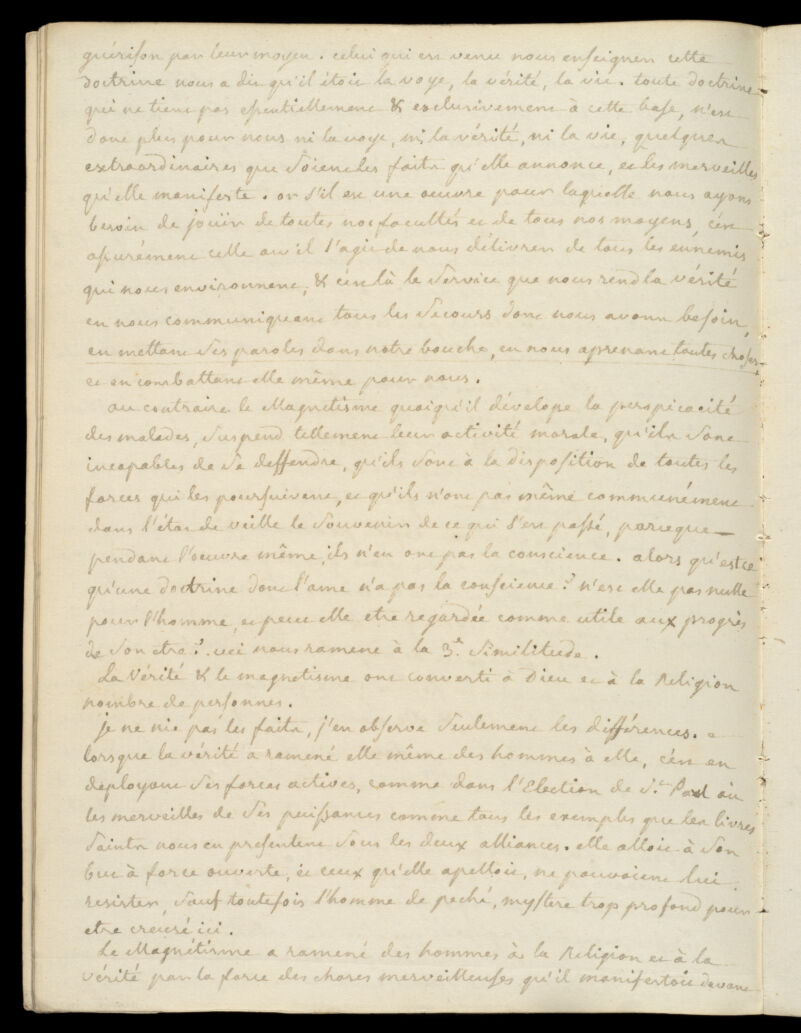 guérison par leur moyen. celui qui est venu nous enseigner cette
doctrine nous a dit qu'il étoit la voye, la vérité, la vie. toute doctrine
qui ne tient pas essentiellement & exclusivement à cette base, n'est
donc plus pour nous ni la voye, ni la vérité, ni la vie, quelques
extraordinaires que soient les faits qu'elle annonce, et les merveilles
qu'elle manifeste. or s'il est une oeuvre pour laquelle nous ayons
besoin de jouïr de toutes nos facultés et de tous nos moyens, c'est
assurément celle où il s'agit de nous délivrer de tous les ennemis
qui nous environnent, & c'est là le service que nous rend la vérité
en nous communiquant tous les secours dont nous avons besoin,
en mettant ses paroles dans notre bouche, en nous aprenant toutes choses
et en combattant elle même pour nous.
au contraire le Magnétisme quoiqu'il dévelope la perspicacité
des malades, suspend tellement leur activité morale, qu'ils sont
incapables de se deffendre, qu'ils sont à la disposition de toutes les
forces qui les poursuivent, et qu'ils n'ont pas même communément
dans l'état de veille le souvenir de ce qui s'est passé, parceque
pendant l'oeuvre même, ils n'en ont pas la conscience. alors qu'est ce
qu'une doctrine dont l'ame n'a pas la conscience? n'est elle pas nulle
pour l'homme, et peut elle etre regardée comme utile aux progrès
de son etre? ceci nous ramene à la 3e. similitude.
La Vérité & le magnetisme ont converti à Dieu et à la Religion
nombre de personnes.
je ne nie pas les faits, j'en observe seulement les différences.
lorsque la vérité a ramené elle même des hommes à elle, c'est en
deployant ses forces actives, comme dans l'Election de St. Paul où
les merveilles de ses puissances comme tous les exemples que les livres
saints nous en presentent sous les deux alliances. elle alloit à son
but à force ouverte, et ceux qu'elle apelloit, ne pouvoient lui
resister, sauf toutefois l'homme de peché, mystere trop profond pour
etre creusé ici.
Le Magnétisme a ramené des hommes à la Religion et à la
vérité par la force des choses merveilleuses qu'il manifestoit devant